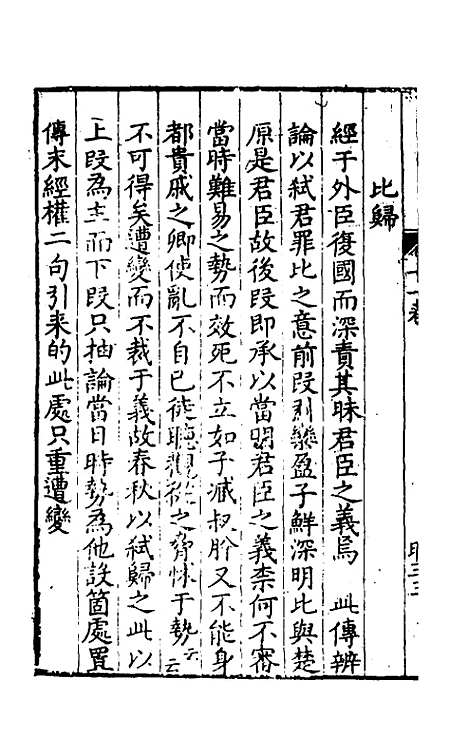 比歸
經于外臣復國而深責其昧君臣之義焉 此傳辨
論以弑君罪比之意前段引欒盈子鮮深明比與楚
原是君臣故後段即承以當明君臣之義柰何不審
當時難易之勢而效死不立如子臧叔肸又不能身
都貴戚之卿使亂不自已徒聽觀從之脅怵于勢云云
不可得矣遭變而不裁于義故春秋以弑歸之此以
上段為主而下段只抽論當日時勢為他設箇處置
傳末經權二句引来的此處只重遭變